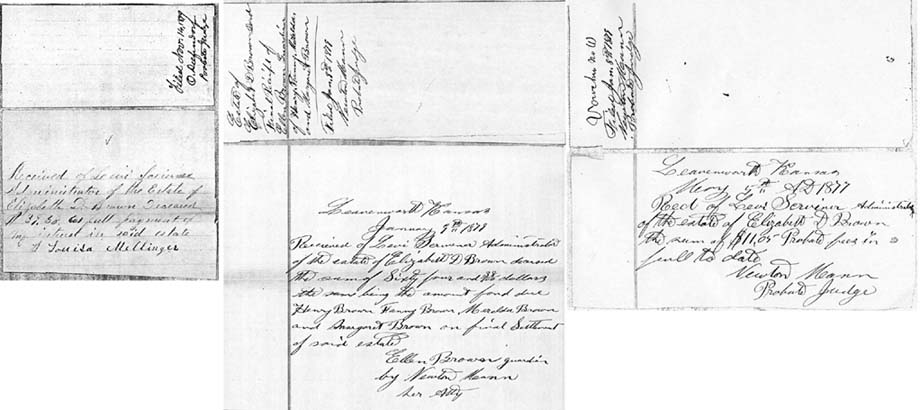 Filed Nov. 14, 1879
O. Diefendorf
Probate Judge
Received of Levi
Administrator of the Estate of
Elizabeth D. Brown Deceased
full payment of
my interest in said estate
Louisa Mellinger
Estate of
Elizabeth D Brown decd
Final Receipt of
Ellen Brown Guardian
of Henry
and Margaret Brown
Filed Jan
Newton Mann
Probate Judge
Leavenworth Kansas
January 9th 1878
Received of Levi Servinor Administrator
of the estate of Elizabeth D Brown deceased
the sum of Sixty four and dollars
the same being the amount found due
Henry Brown Fanny Brown Merilda Brown
and Margaret Brown on final Settlement
of said estate
Ellen Brown guardian
by Newton Mann
her Atty
Voucher no
Filed
Newton Mann
Probate Judge
Leavenworth Kansas
AD 1877
Recd of Levi Servinor Administrator
of the estate of Elizabeth D Brown
the sum of $11,05 Probate fees in
full to date
Newton Mann
Probate Judge